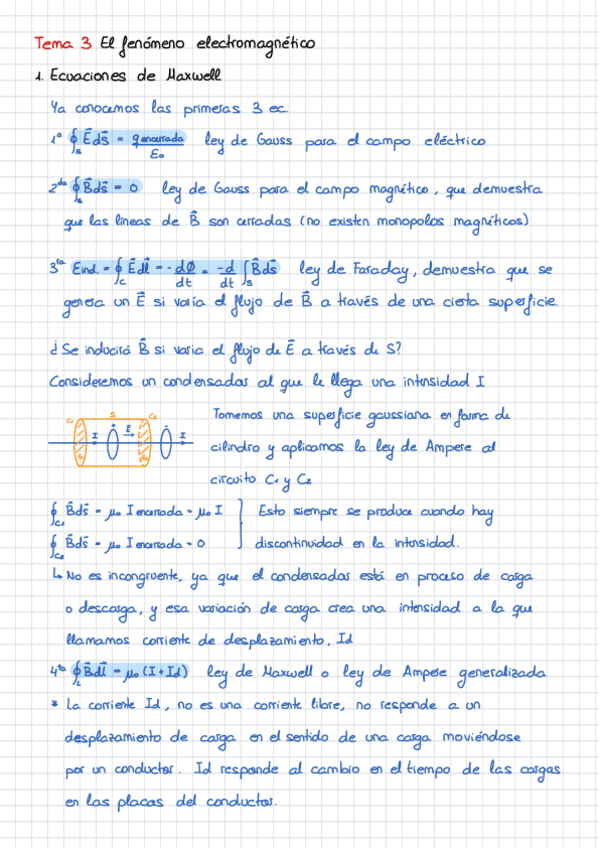 Tema 3 El fenómeno electromagnético
1. Ecuaciones de Maxwell
Ya conocemos las primeras 3 ec.
1ª ∮_S E⃗ ds⃗ = q encerrada / ε₀ ley de Gauss para el campo eléctrico
2da ∮_S B⃗ ds⃗ = 0 ley de Gauss para el campo magnético, que demuestra
que las líneas de B⃗ son cerradas (no existen monopolos magnéticos)
3ra Eind. = ∮_C E⃗ dl⃗ = - dØ/dt = -d/dt ∫_S B⃗ ds⃗ ley de Faraday, demuestra que se
genera un E⃗ si varía el flujo de B⃗ a través de una cierta superficie.
¿Se inducirá B⃗ si varia el flujo de E⃗ a través de S?
Consideremos un condensadas al que le llega una intensidad I
C₁ S C₂
I E⃗ I
Tomemos una superficie gaussiana en forma de
cilindro y aplicamos la ley de Ampere al
circuito C₁ y C₂
∮_C₁ B⃗ ds⃗ = μ₀ I encerrada = μ₀ I
∮_C₂ B⃗ ds⃗ = μ₀ I encerrada = 0
Esto siempre se produce cuando hay
discontinuidad en la intensidad.
↳ No es incongruente, ya que el condensadas está en proceso de carga
o descarga, y esa variación de carga crea una intensidad a la que
llamamos corriente de desplazamiento, Id
4ta ∮_L B⃗ dl⃗ = μ₀ (I + Id) ley de Maxwell o ley de Ampere generalizada
* La corriente Id, no es una corriente libre, no responde a un
desplazamiento de carga en el sentido de una carga moviéndose
por un conductor. Id responde al cambio en el tiempo de las cargas
en las placas del conductor.